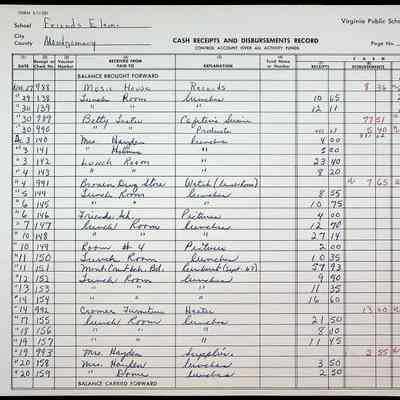 School Friends Elem.
Virginia Public Scho
City
County Montgomery
CASH RECEIPTS AND DISBURSEMENTS RECORD
CONTROL ACCOUNT OVER ALL ACTIVITY FUNDS
Page No.
CASH
RECEIVED FROM
PAID TO
EXPLANATION
RECEIPTS
DISBURSEMENTS
BALANCE BROUGHT FORWARD
988 Music House Records 8 36
" 29 138 Lunch Room Lunches 10 65
" 30 139 " " 12 11
" 30 989 Betty Lester 77 51
" 30 990 " 5 40
3 140 Mrs. Hayden Lunches 4 00
" 3 141 " " 5 00
" 3 142 Lunch Room " 23 40
" 4 143 " " 8 20
" 4 991 Drug Store 7 65
" 5 144 Lunch Room Lunches 8 55
" 6 145 " " 10 75
" 6 146 Friends Pictures 4 00
" 7 147 Lunch Room Lunches 12 70
" 10 148 " " 27 14
" 10 149 Room # 4 Pictures 2 00
" 11 150 Lunch Room Lunches 10 35
" 11 151 57 93
" 12 152 Lunch Room Lunches 9 90
" 13 153 " " 11 35
" 14 154 " " 16 60
" 14 992 Cromer Furniture Heater 13 00
" 17 155 Lunch Room Lunches 21 50
" 18 156 " " 8 00
" 19 157 " " 11 45
" 19 993 Mrs. Hayden Supplies 2 55
" 20 158 Mrs. Hayden Lunches 3 50
" 20 159 " " 2 50
BALANCE CARRIED FORWARD